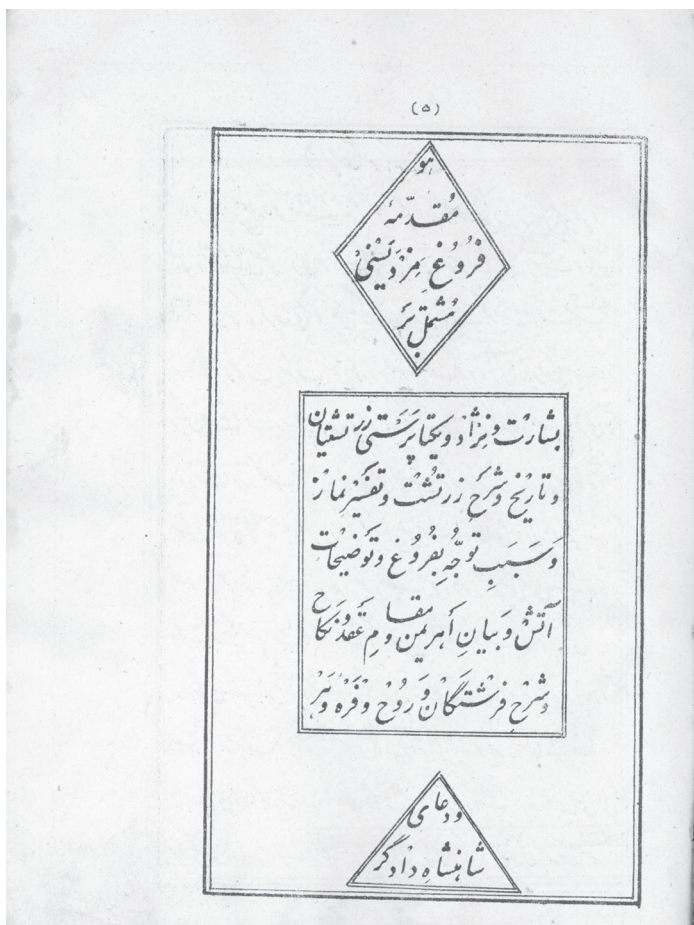 (۵)
هو
مُقدّمهٔ
فُرُوغِ مَزْدَیَسْنیٰ
مُشتمل بَر
بشارت و نِژاد و یکتاپَرَستیِ زرتشتیان
و تاریخ و شَرحِ زرتُشت و تفسیر نماز
وَ سَبَبِ توجّه بِفُرُوغ و تَوضیحات
آتش و بَیانِ أهریمن و مقامِ عَقد و نکاح
و شرحِ فرشتگان وَ رُوح و فَرَه وَهَر
و دعایِ
شاهنشاهِ دادگر